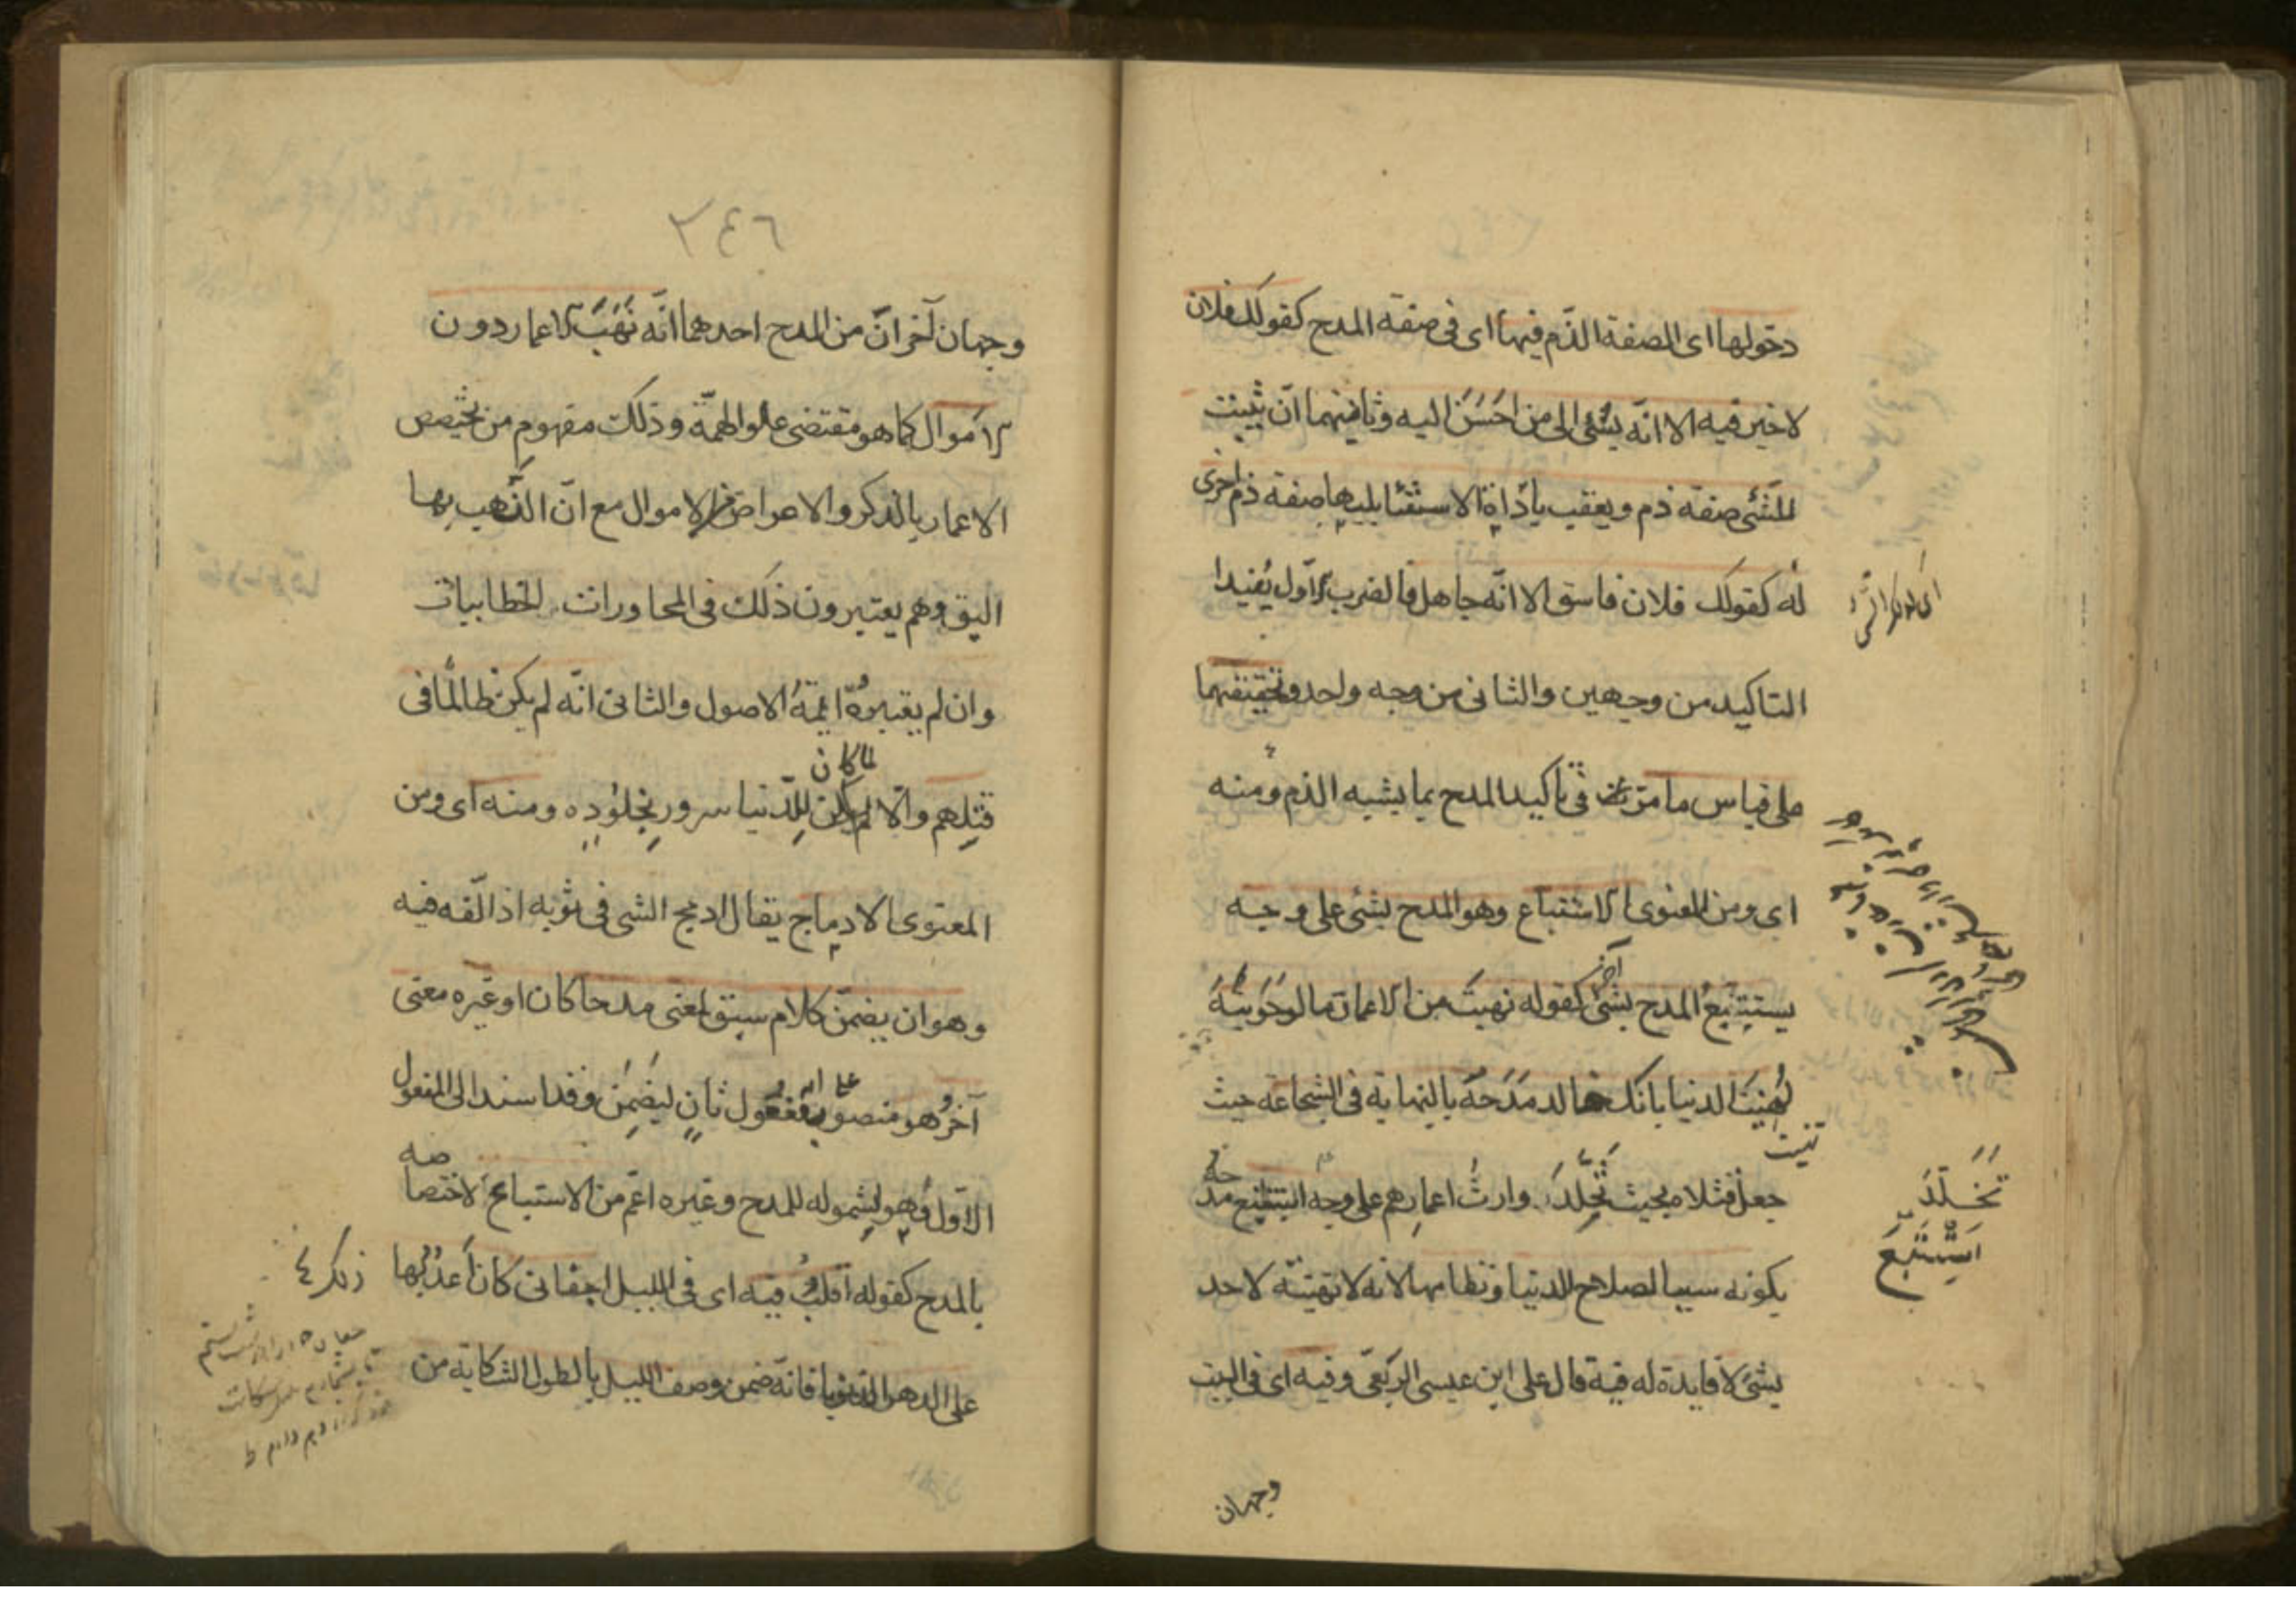 دخولها اى المصفة الذّم فيها اى فى صفة المدح كقولك فلان
لا خير فيه الا انّه يسُئى الى من احَسَنَ اليه وثانيتهما ان تثبت
للشئى صفة ذم ويعقب باداة الاستثنا يليها صفة ذم اخرى
له كقولك فلان فاسق الا انّه جاهل فالضرب الاول يُفيدا
التاكيد من وجهين والثانى من وجه واحد وتحقيقهما
على قياس ما مرّ فى تاكيد المدح بما يشبه الذم ومنه
اى ومن المعنوى الاستتباع وهو المدح بشئى على وجه
يستتبع المدح بشئ آخر كقوله نهبتَ من الاعمار ما لو حَوَيتَهُ
لهُنِيَت الدنيا بانك خالد مَدَحَهُ بالنهاية فى الشجاعة حيث
جعل قتلاه بحيث تُخلِّدَ وارثُ اعمارهم على وجه استتبع مدحه
بكونه سببا لصلاح الدنيا ونظامها لانه لا تهنيته لاحد
بشئ لا فايدة له فيه قال على ابن عيسى الربعى وفيه اى فى البيت
تخلّدَ
اسْتَتْبَعَ
وجهان
٣٤٦
وجهان آخران من المدح احدهما انّه نَهَبَ الاعمار دون
الامَوال كما هو مقتضى علو الهمّة وذلك مفهوم من تخصيص
الاعمار بالذكر والاعراض عن الاموال مع انّ النّهب بها
اليق وهم يعتبرون ذلك فى المحاورات والخطابيات
وان لم يعتبره ايمّةُ الاصول والثانى انّه لم يكن ظالمًا فى
قتلِهم والّا لما كان للدّنيا سرور بخلوده ومنه اى ومن
المعنوى الادماج يقال ادمج الشى فى ثوبه اذا لّفه فيه
وهو ان يضمّن كلام سيق لمعنى مدحا كان او غيره معنى
آخر وهو منصوب على انه مفعول ثانٍ ليضمن وقد اسند الى المفعول
الاوّل وهو لشموله للمدح وغيره اعّم من الاستتباع لاختصاصه
بالمدح كقوله اقلّبُ فيه اى فى الليل اجفانى كانى اَعُدُّ بها
على الدهر الذنوبا فانّه ضمن وصف الليل بالطول الشكاية من